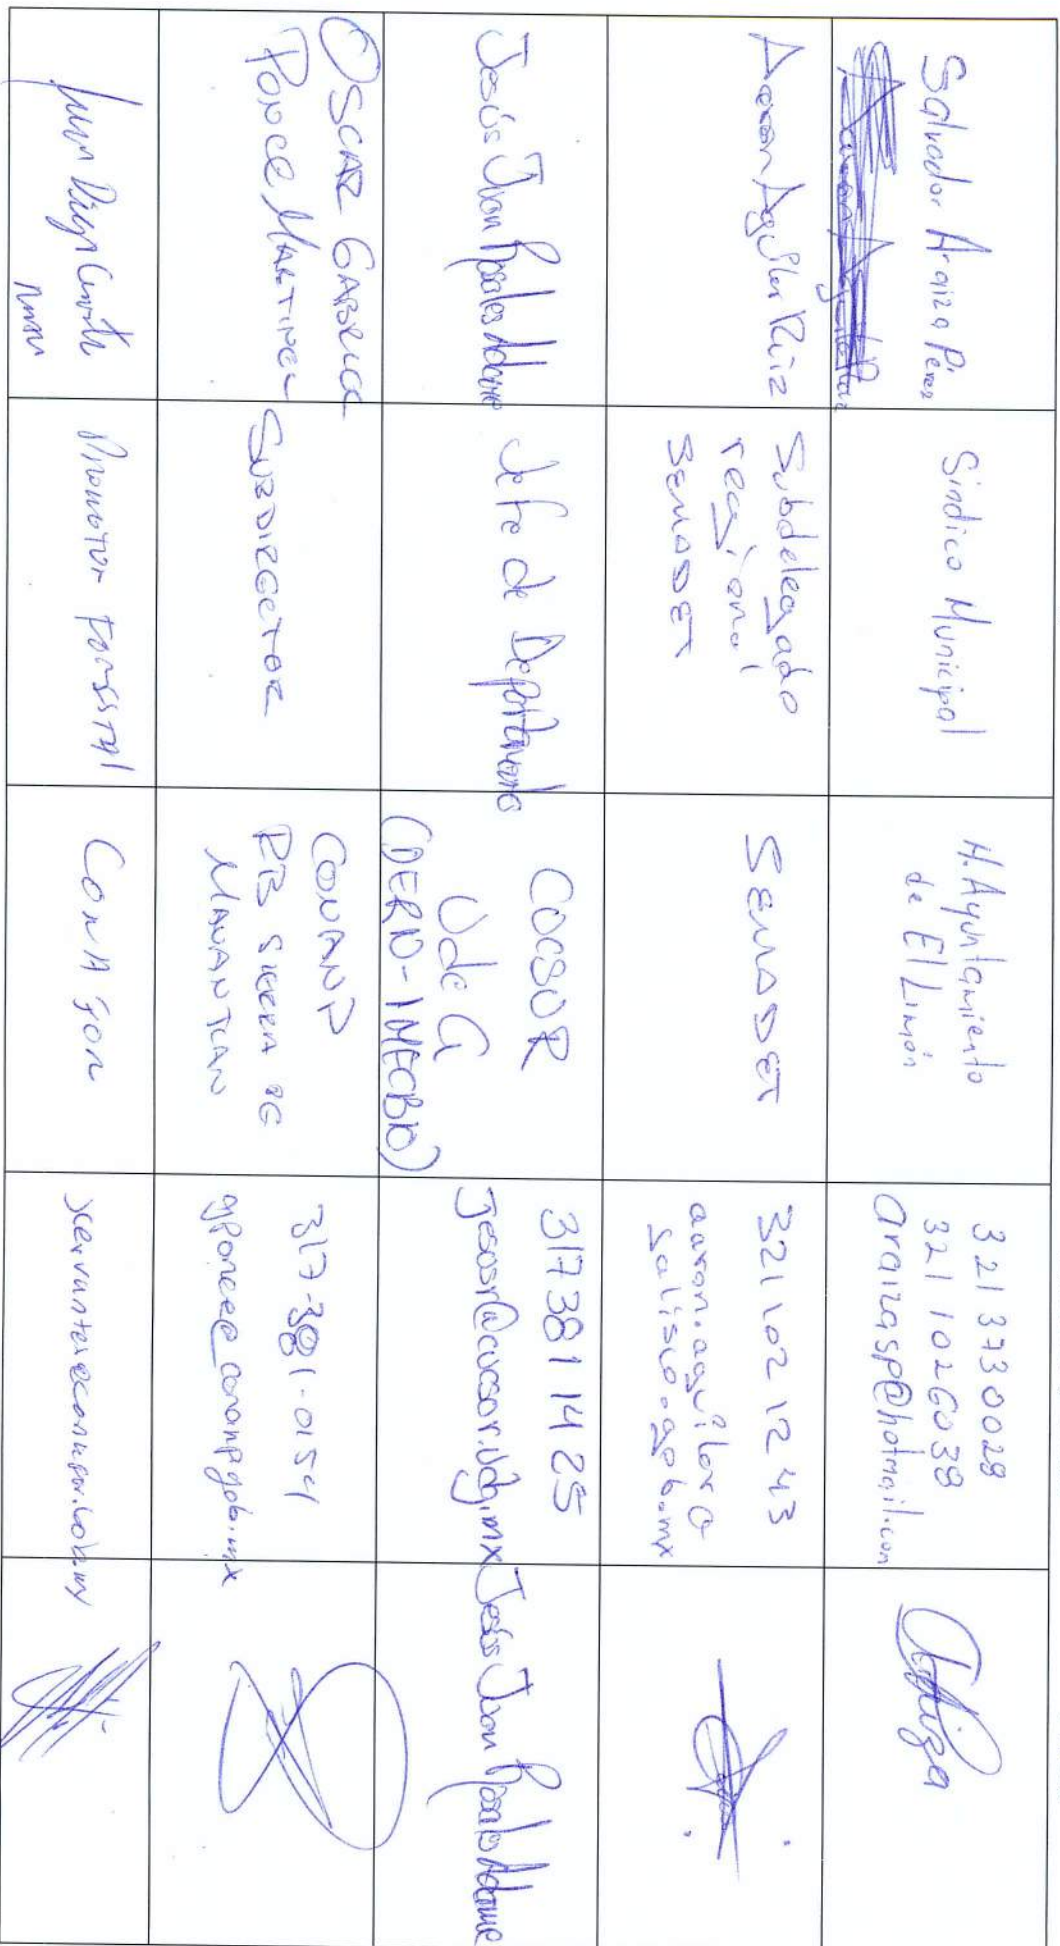 Salvador Araiza Pérez
Sindico Municipal
H. Ayuntamiento
de El Limón
321 373 0028
321 102 6038
araizasp@hotmail.com
Araiza
Aaron Aguilar Ruiz
Subdelegado
regional
SEMADET
SEMADET
321 102 12 43
aaron.aguilar@
jalisco.gob.mx
Jesús Juan Rosales Adame
Jefe de Departamento
CUCSUR
UdeG
(DERN-IMECBIO)
317 38 1 14 25
jesusr@cucsur.udg.mx
Jesús Juan Rosales Adame
OSCAR GABRIEL
PONCE MARTINEZ
SUBDIRECTOR
CONANP
RB SIERRA DE
MANANTLAN
317-381-0154
Juan Diego
Promotor Forestal
CONAFOR